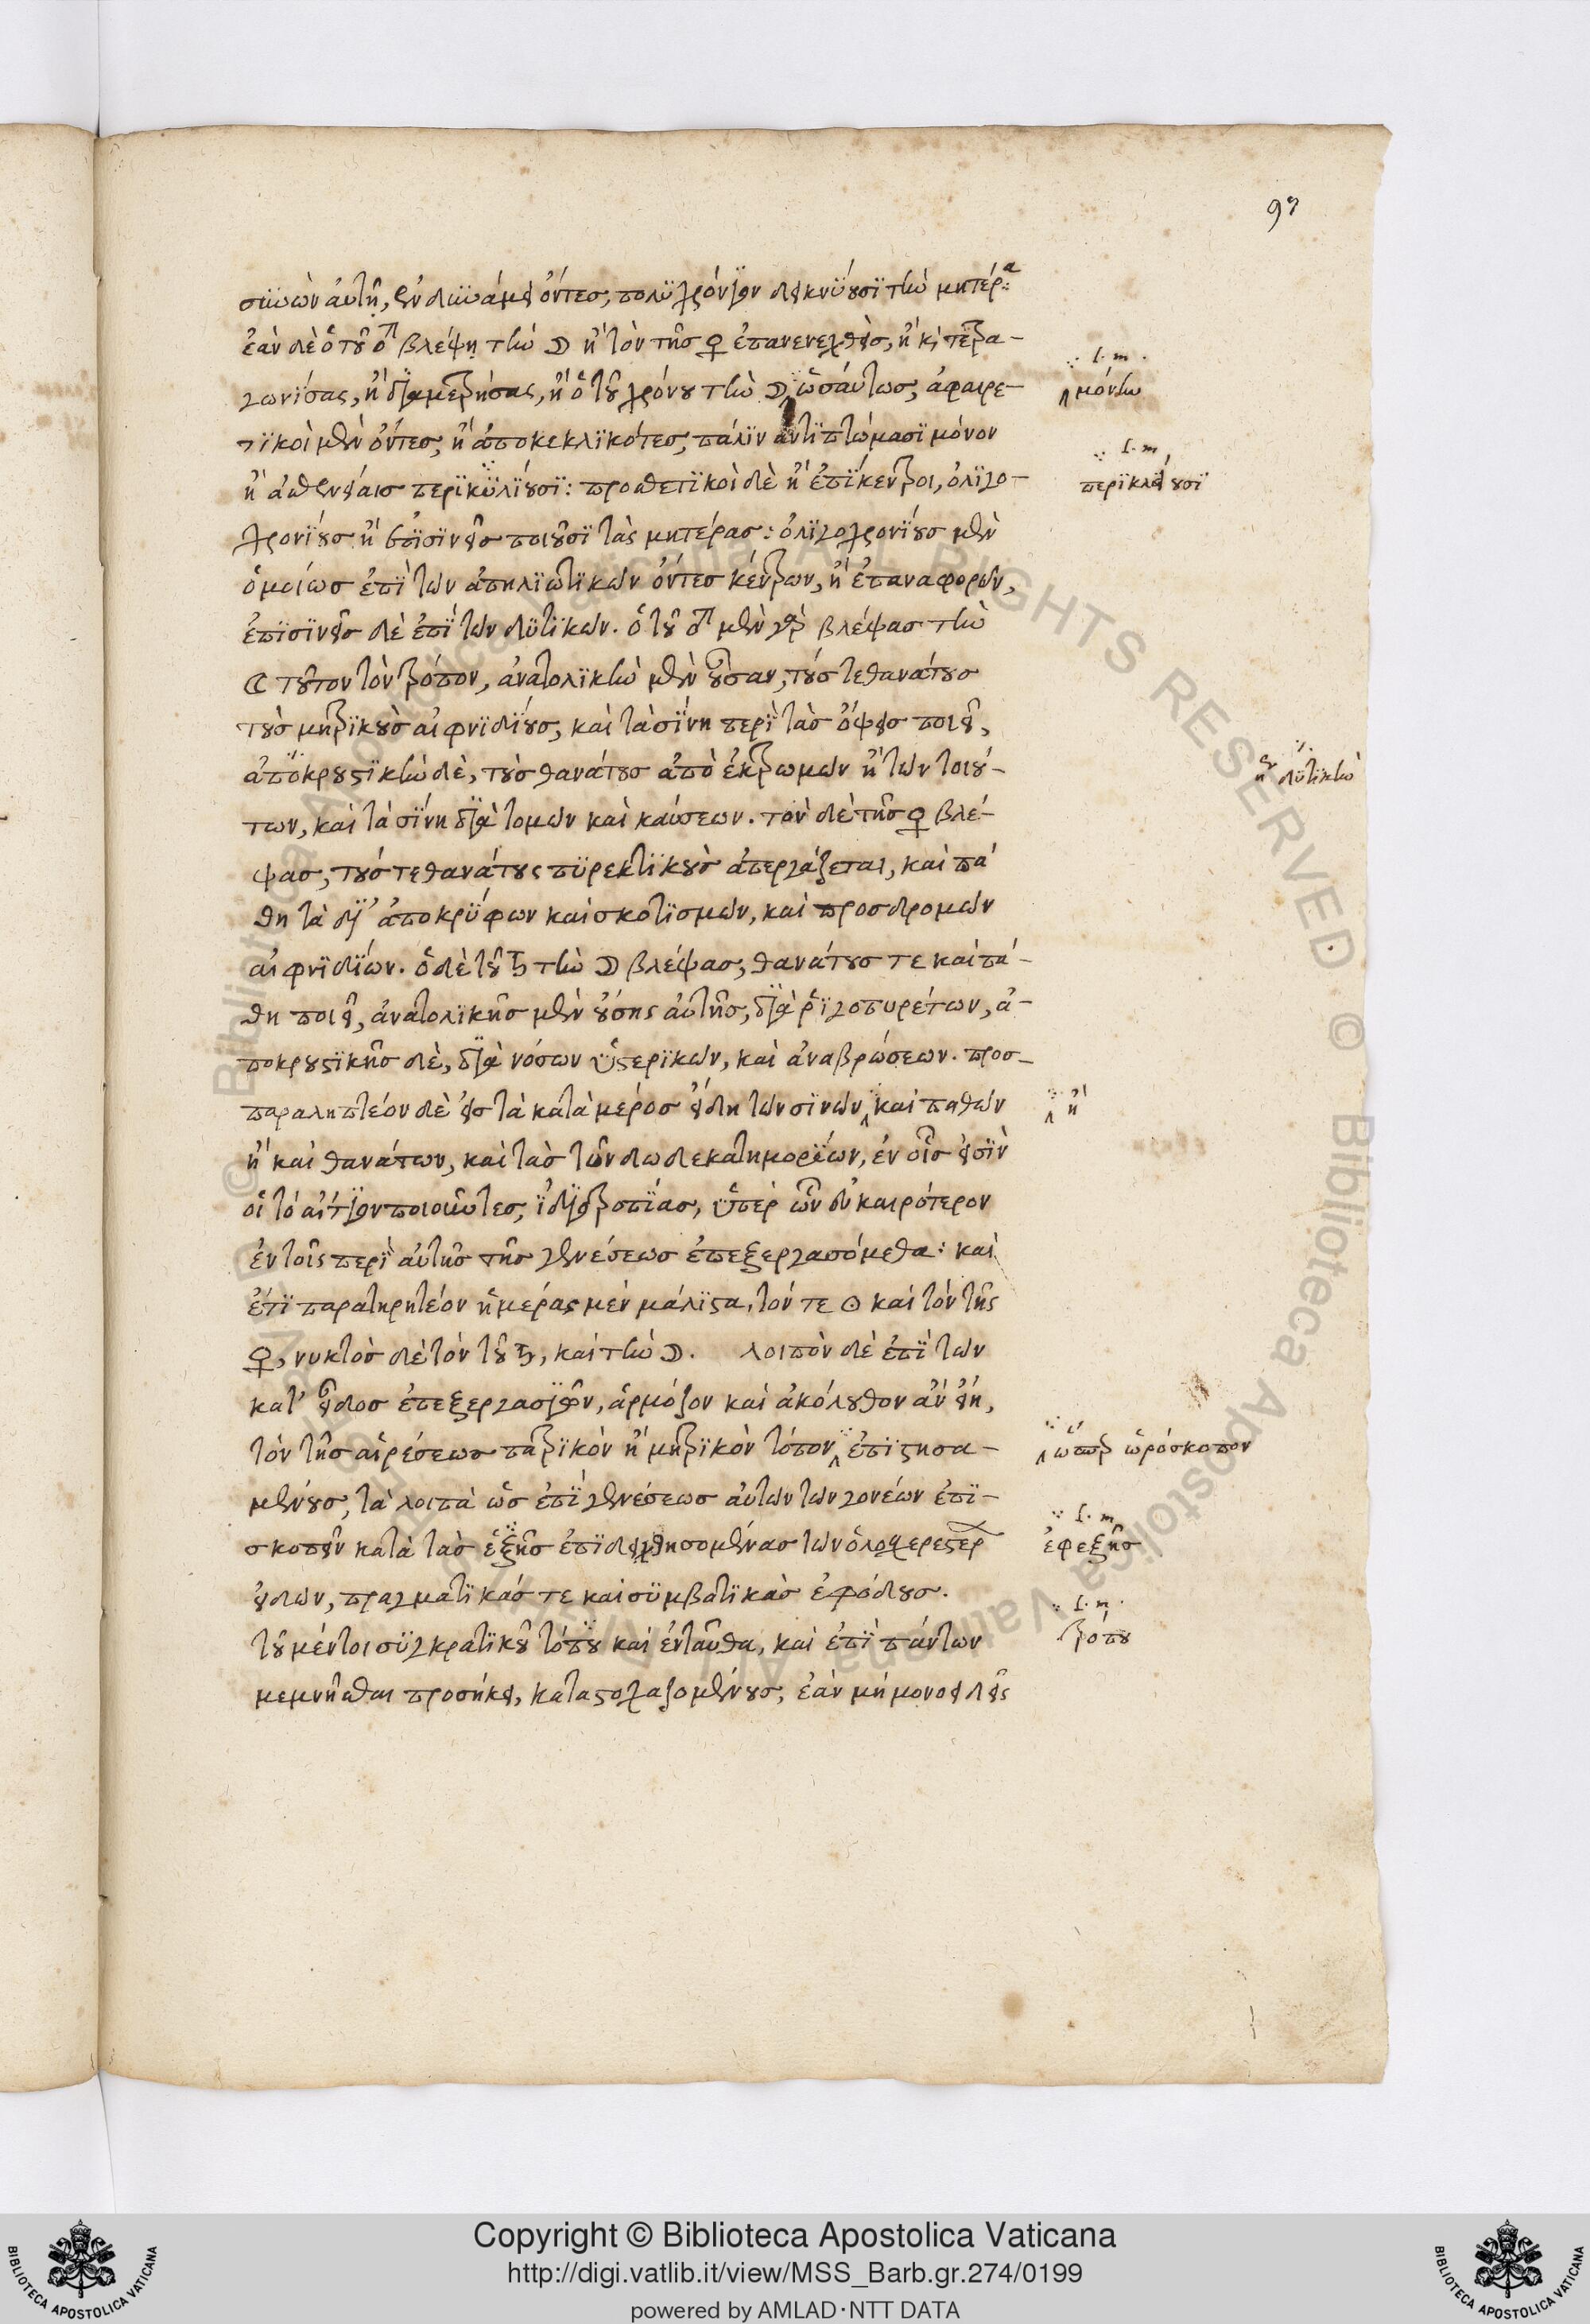 97
συνὼν αὐτῇ, ἐν δυνάμει ὄντες, πολυχρόνιον δεικνύουσι τὴν μητέρα
ἐὰν δὲ ὁ τοῦ ♂ βλέψῃ τὴν ☽ ἢ τὸν τῆς ♀ ἐπανενεχθεὶς, ἢ κὶ τετρα-
γωνίσας, ἢ διαμετρήσας, ἢ ὁ τοῦ χρόνου τὴν ☽, ὡσαύτως, ἀφαιρε-
τικοὶ μὲν ὄντες, ἢ ἀποκεκλικότες, πάλιν ἀντιπτώμασι μόνον
ἢ ἀσθενείαις περικυλίουσι: προσθετικοὶ δὲ ἢ ἐπίκεντροι, ὀλιγο-
χρονίους ἢ ἐπισινεῖς ποιοῦσι τὰς μητέρας: ὀλιγοχρονίους μὲν
ὁμοίως ἐπὶ τῶν ἀπηλιωτικῶν ὄντες κέντρων, ἢ ἐπαναφορῶν,
ἐπισινεῖς δὲ ἐπὶ τῶν λυτικῶν. ὁ τοῦ ♂ μὲν γὰρ βλέψας τὴν
☾ τοῦτον τὸν τρόπον, ἀνατολικὴν μὲν οὖσαν, τούς τε θανάτους
τοὺς μητρικοὺς αἰφνιδίους, καὶ τὰ σίνη περὶ τὰς ὄψεις ποιεῖ,
ἀποκρουστικὴν δὲ, τοὺς θανάτους ἀπὸ ἐκτρωμῶν ἢ τῶν τοιού-
των, καὶ τὰ σίνη διὰ τομῶν καὶ καύσεων. τὸν δὲ τῆς ♀ βλέ-
ψας, τούς τε θανάτους πυρεκτικοὺς ἀπεργάζεται, καὶ πά
θη τὰ δι' ἀποκρύφων καὶ σκοτισμῶν, καὶ προσδρομῶν
αἰφνιδίων. ὁ δὲ τοῦ ♄ τὴν ☽ βλέψας, θανάτους τε καὶ πά-
θη ποιεῖ, ἀνατολικῆς μὲν οὔσης αὐτῆς, διὰ ῥιγοπυρέτων, ἀ-
ποκρουστικῆς δὲ, διὰ νόσων ὑστερικῶν, καὶ ἀναβρώσεων. προσ-
παραληπτέον δὲ εἰς τὰ κατὰ μέρος εἴδη τῶν σινῶν, καὶ παθῶν
ἢ καὶ θανάτων, καὶ τὰς τῶν δωδεκατημορίων, ἐν οἷς εἰσὶν
οἱ τὸ αἴτιον ποιοῦντες, ἰδιοτροπίας, ὑπὲρ ὧν εὐκαιρότερον
ἐν τοῖς περὶ αὐτῆς τῆς γενέσεως ἐπεξεργασόμεθα: καὶ
ἔτι παρατηρητέον ἡμέρας μὲν μάλιστα, τόν τε ☉ καὶ τὸν τῆς
♀, νυκτὸς δὲ τὸν τοῦ ♄, καὶ τὴν ☽. λοιπὸν δὲ ἐπὶ τῶν
κατ' εἶδος ἐπεξεργασιῶν, ἁρμόζον καὶ ἀκόλουθον ἂν εἴη,
τὸν τῆς αἱρέσεως πατρικὸν ἢ μητρικὸν τόπον, ἐπιστησα-
μένους, τὰ λοιπὰ ὡς ἐπὶ γενέσεως αὐτῶν τῶν γονέων ἐπι-
σκοπεῖν κατὰ τὰς ἑξῆς ἐπιδειχθησομένας τῶν ὁλοσχερεστέρ
εἰδῶν, πραγματικάς τε καὶ συμβατικὰς ἐφόδους.
τοῦ μέντοι συγκρατικοῦ τόπου καὶ ἐνταῦθα, καὶ ἐπὶ πάντων
μεμνῆσθαι προσήκει, καταστοχαζομένους, ἐὰν μὴ μονοειδεῖς
f. m.
μόνην
f. m.
περικλείουσι
δυτικὴν
ἢ
ὥσπερ ὡρόσκοπον
f. m.
ἐφεξῆς
f. m.
τρόπου
Copyright © Biblioteca Apostolica Vaticana
http://digi.vatlib.it/view/MSS_Barb.gr.274/0199
powered by AMLAD·NTT DATA